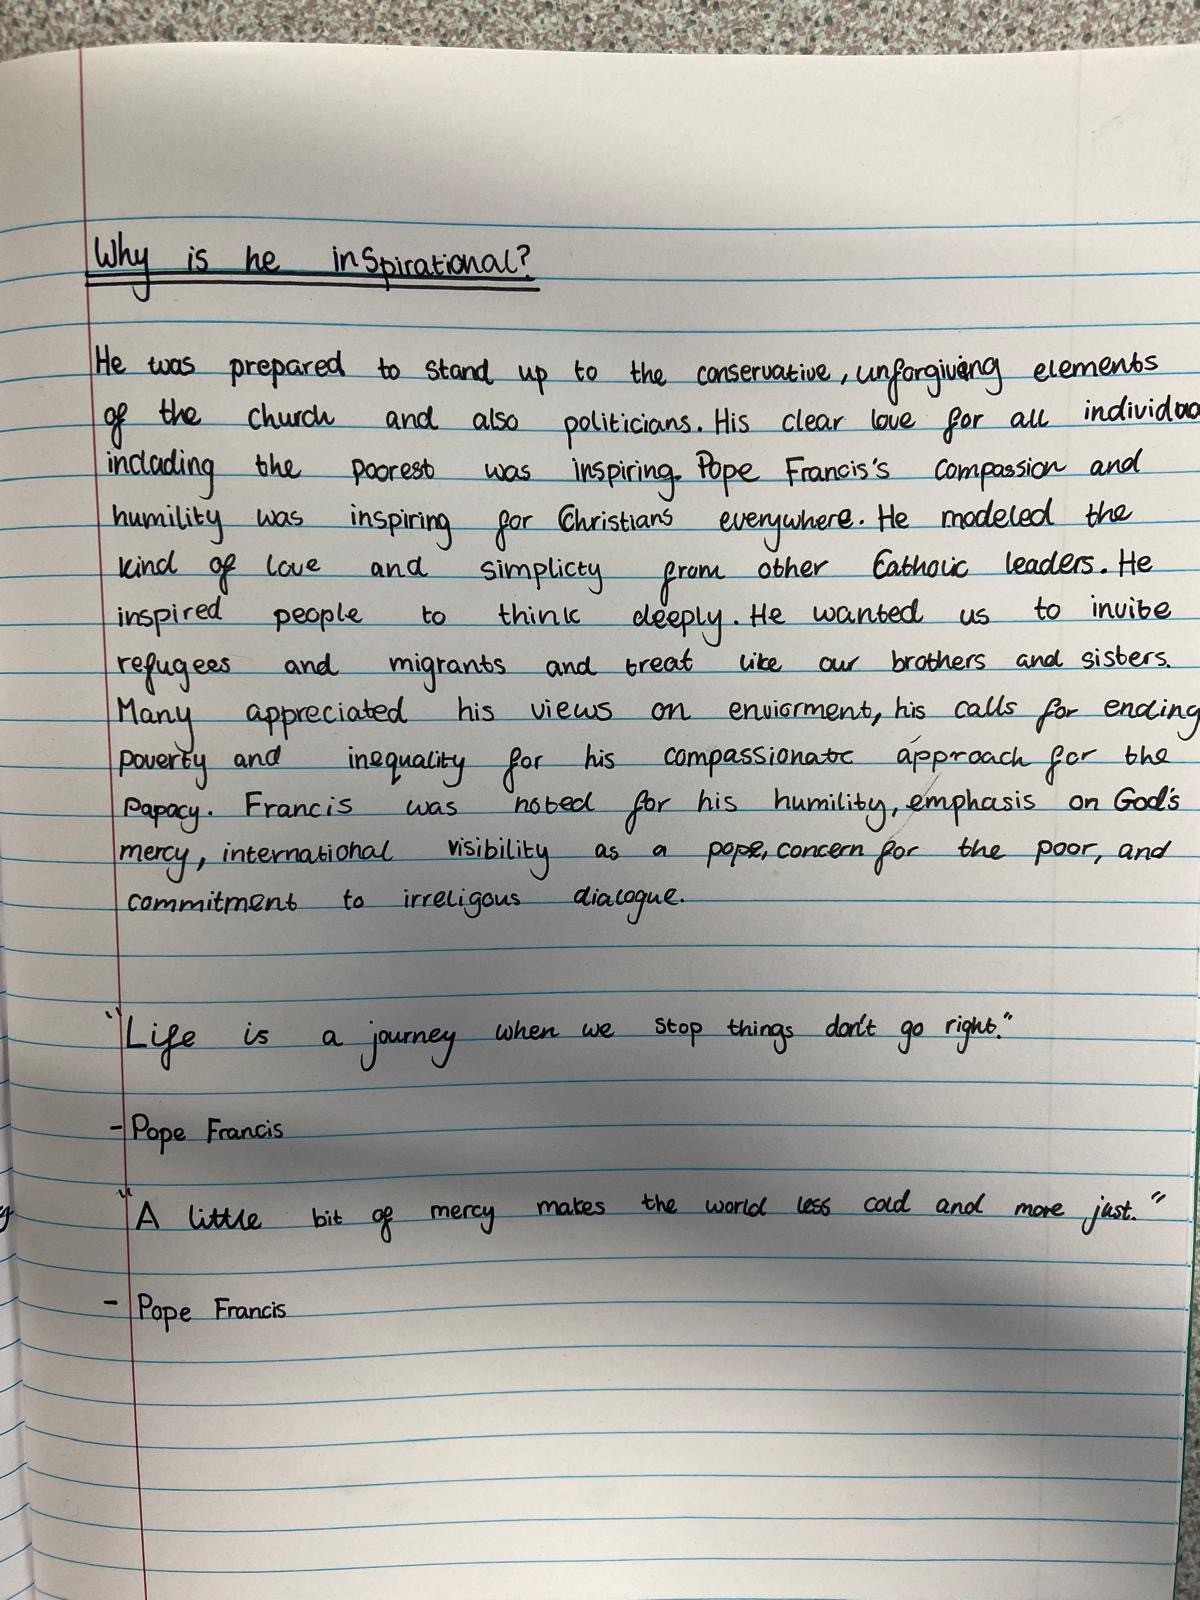 Why is he inspirational?
He was prepared to stand up to the conservative, unforgiving elements
of the church and also politicians. His clear love for all individua
including the poorest was inspiring. Pope Francis's compassion and
humility was inspiring for Christians everywhere. He modeled the
kind of love and simplicty from other Catholic leaders. He
inspired people to think deeply. He wanted us to invite
refugees and migrants and treat like our brothers and sisters.
Many appreciated his views on enviorment, his calls for ending
poverty and inequality for his compassionate approach for the
Papacy. Francis was noted for his humility, emphasis on God's
mercy, international visibility as a pope, concern for the poor, and
commitment to irreligous dialogue.
"Life is a journey when we stop things don't go right."
- Pope Francis
"A little bit of mercy makes the world less cold and more just."
- Pope Francis